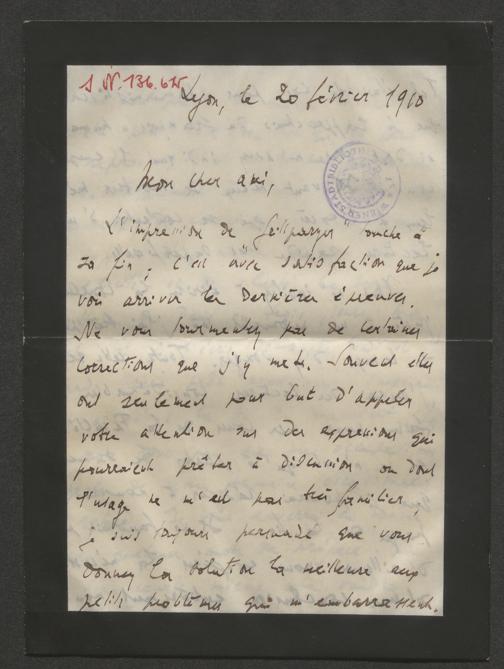 J.N. 136.675
Lyon, le 20 février 1910
Mon cher ami,
L'impression de Grillparzer touche à
sa fin ; c'est avec satisfaction que je
vois arriver les dernières épreuves.
Ne vous tourmentez pas de certaines
corrections que j'y mets. Souvent elles
ont seulement pour but d'appeler
votre attention sur des expressions qui
pourraient prêter à discussion ou dont
l'usage ne m'est pas très familier,
je suis toujours persuadé que vous
donnez la solution la meilleure aux
petits problèmes qui m'embarrassent.